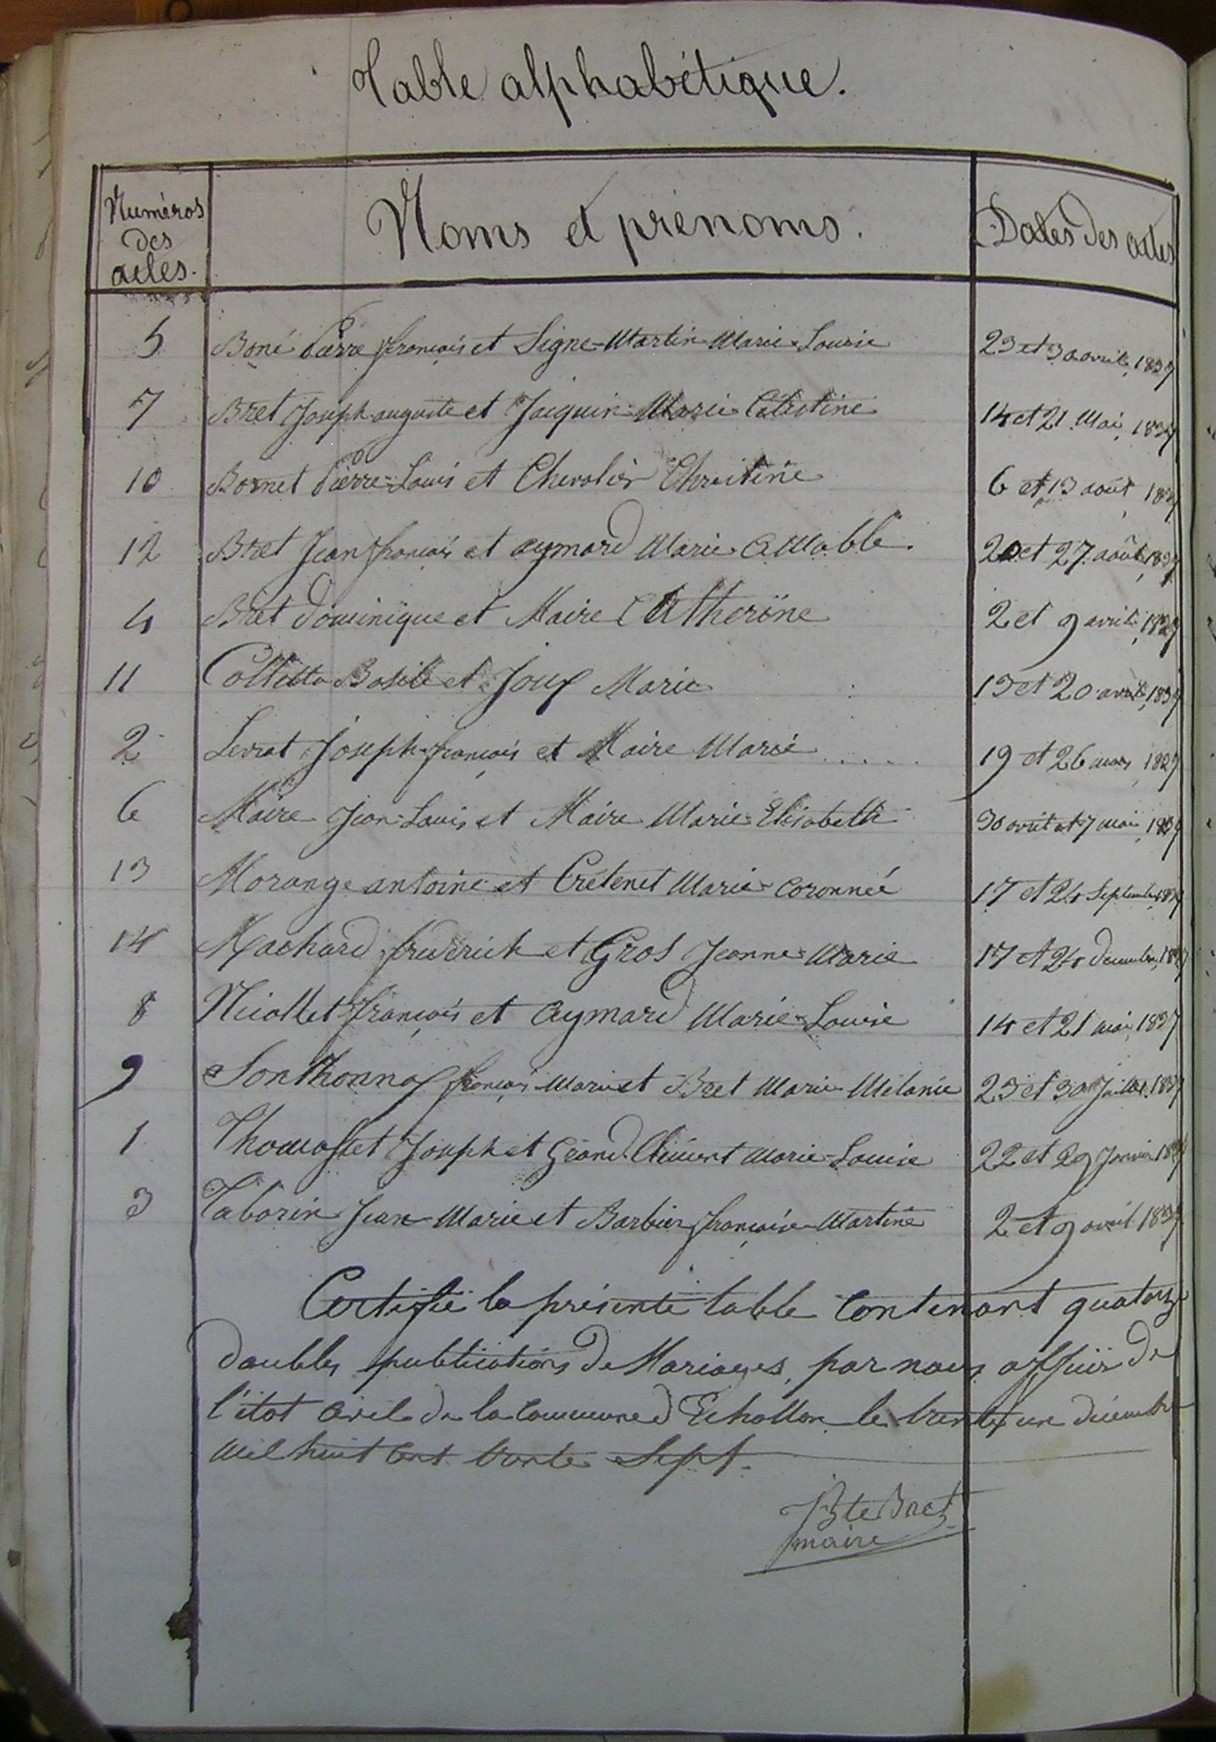 Table alphabétique.
Numéros des actes. Noms et prénoms. Dates des actes
5 Boné Pierre françois et Signe-Martin Marie-Louise 23 et 30 avril 1837
7 Bret Joseph auguste et Jaiquin Marie Célestine 14 et 21 Mai 1837
10 Bornet Pierre-Louis et Chevalier Christine 6 et 13 août 1837
12 Bret Jean françois et aymard Marie amable. 20 et 27 août 1837
4 Bret Dominique et Maire Catherine 2 et 9 avril 1837
11 Colletta Basile et Joux Marie 13 et 20 1837
2 Levrat Joseph-françois et Maire Marie 19 et 26 mars 1837
6 Maire Jean-Louis et Maire Marie-Elisabeth 30 avril et 7 mai 1837
13 Morange antoine et Crétenet Marie-coronnée 17 et 24 Septembre 1837
14 Machard frederick et Gros Jeanne-Marie 17 et 24 decembre 1837
8 Niollet françois et aymard Marie-Louise 14 et 21 mai 1837
9 Sonthonnax françois-Marie et Bret Marie Mélanie 23 et 30 Juillet 1837
1 Thomasset Joseph et Géand Clément Marie-Louise 22 et 29 Janvier 1837
3 Taborin Jean-Marie et Barbier françoise-Martine 2 et 9 avril 1837
Certifié la présente table contenant quatorze
doubles publications de Mariages, par nous officier de
l'état civil de la Commune d'Echallon le trente un décembre
mil huit cent trente Sept.
Bte Bret
maire